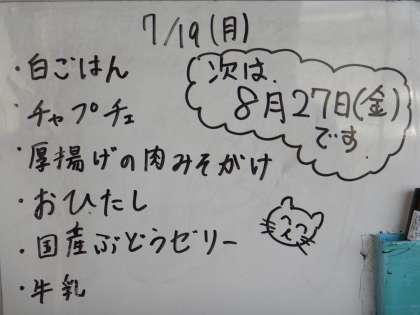 7/19(月)
・白ごはん
・チャプチェ
・厚揚げの肉みそがけ
・おひたし
・国産ぶどうゼリー
・牛乳
次は、
8月27日(金)
です。